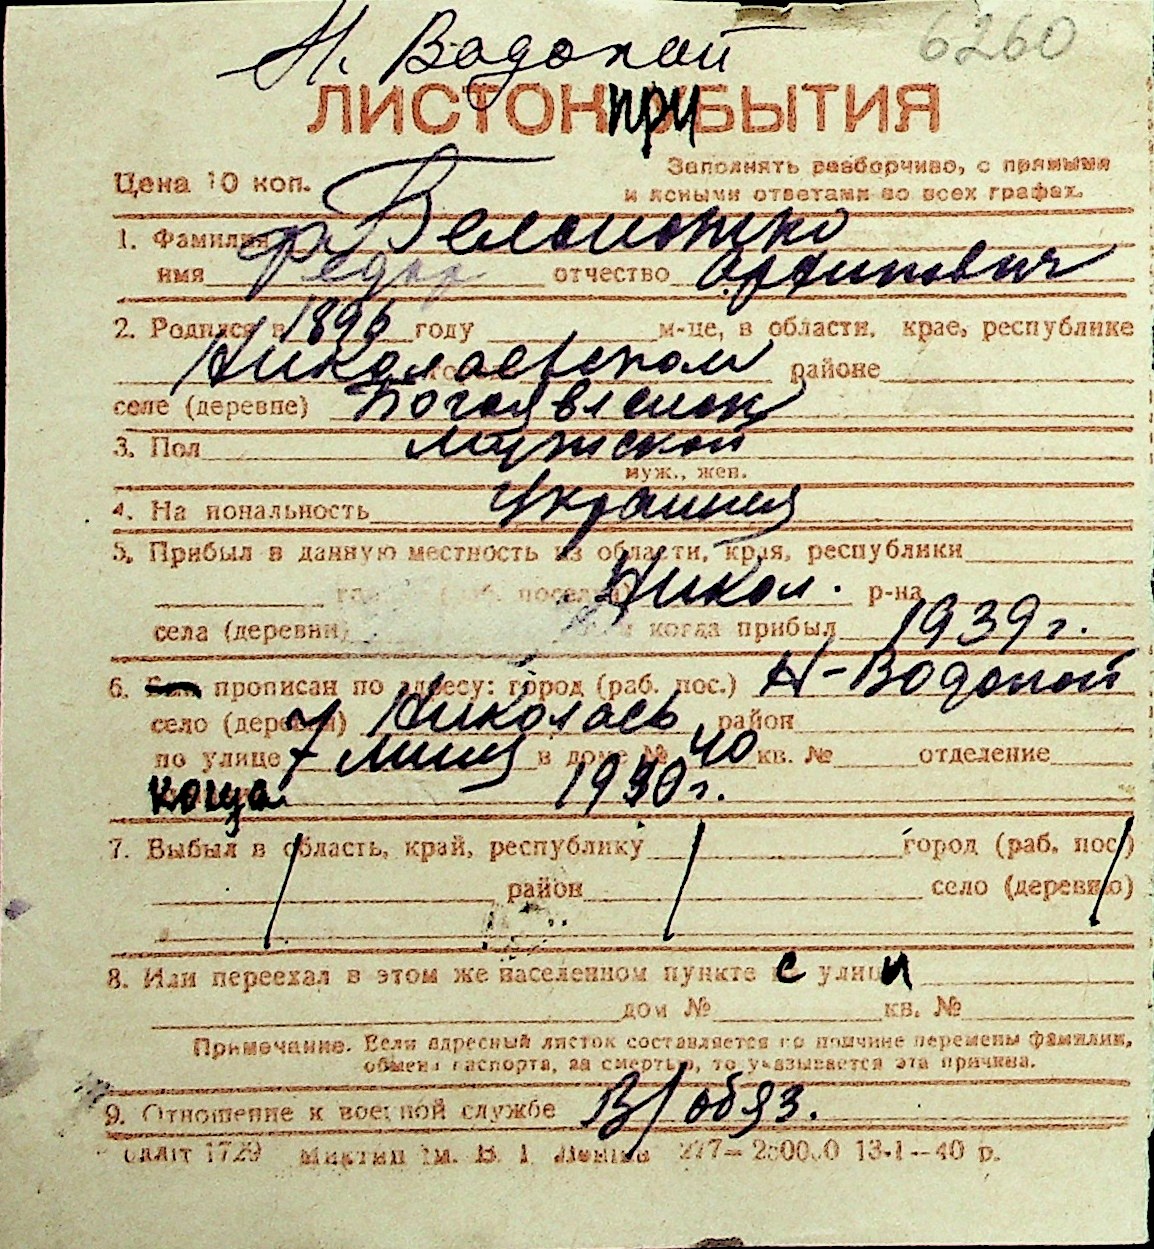 Н. Водопой
6260
ЛИСТОК ПРИБЫТИЯ
Цена 10 коп.
Заполнять разборчиво, с прямыми
и ясными ответами во всех графах.
1. Фамилия
имя Федор отчество Архипович
2. Родился в 1896 году м-це, в области, крае, республике
Николаевском районе
селе (деревне) Богоявленск
3. Пол мужской
муж., жен.
4. Национальность Украинец
5. Прибыл в данную местность из области, края, республики
Никол. р-на
села (деревни) когда прибыл 1939 г.
6. прописан по адресу: город (раб. пос.) Н-Водопой
село (деревня) Николаев район
по улице 7 линия в доме № 40 кв. № отделение
когда 1930 г.
7. Выбыл в область, край, республику город (раб. пос.)
район село (деревню)
8. Или переехал в этом же населенном пункте с улици
дом № кв. №
Примечание. Если адресный листок составляется по причине перемены фамилии,
обмена паспорта, за смертью, то указывается эта причина.
9. Отношение к военной службе В/обяз.
1729 13-1-40 р.